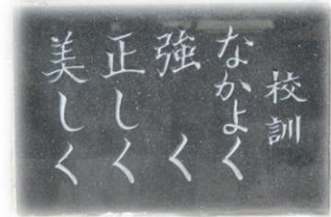 校訓
なかよく
強く
正しく
美しく